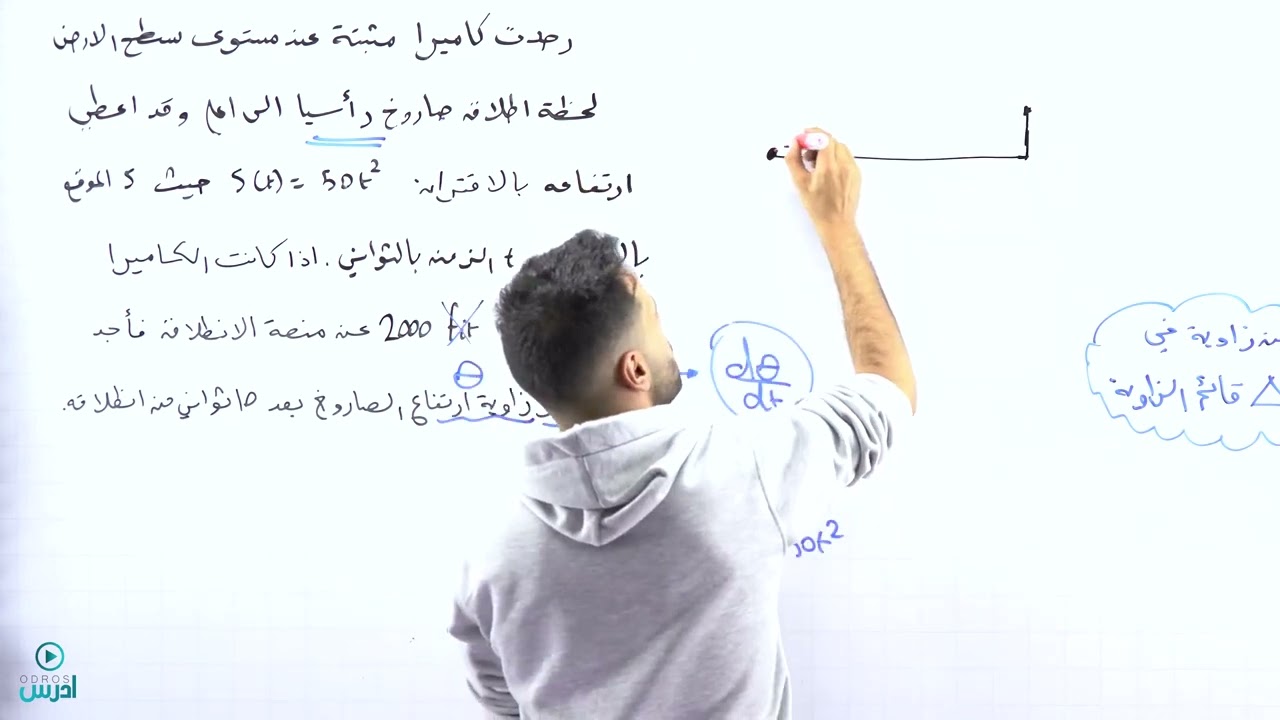 رصدت كاميرا مثبتة عند مستوى سطح الارض
لحظة اطلاق صاروخ رأسيا الى اعلى وقد اعطي
ارتفاعه بالاقتران S(t) = 50t² حيث S الموقع
t الزمن بالثواني. اذا كانت الكاميرا
2000 fit عن منصة الانطلاق فأجد
زاوية ارتفاع الصاروخ بعد 10 ثواني من انطلاقه.
θ
dθ/dt
زاوية في
△ قائم الزاوية
0t²
ODROS
ادرس